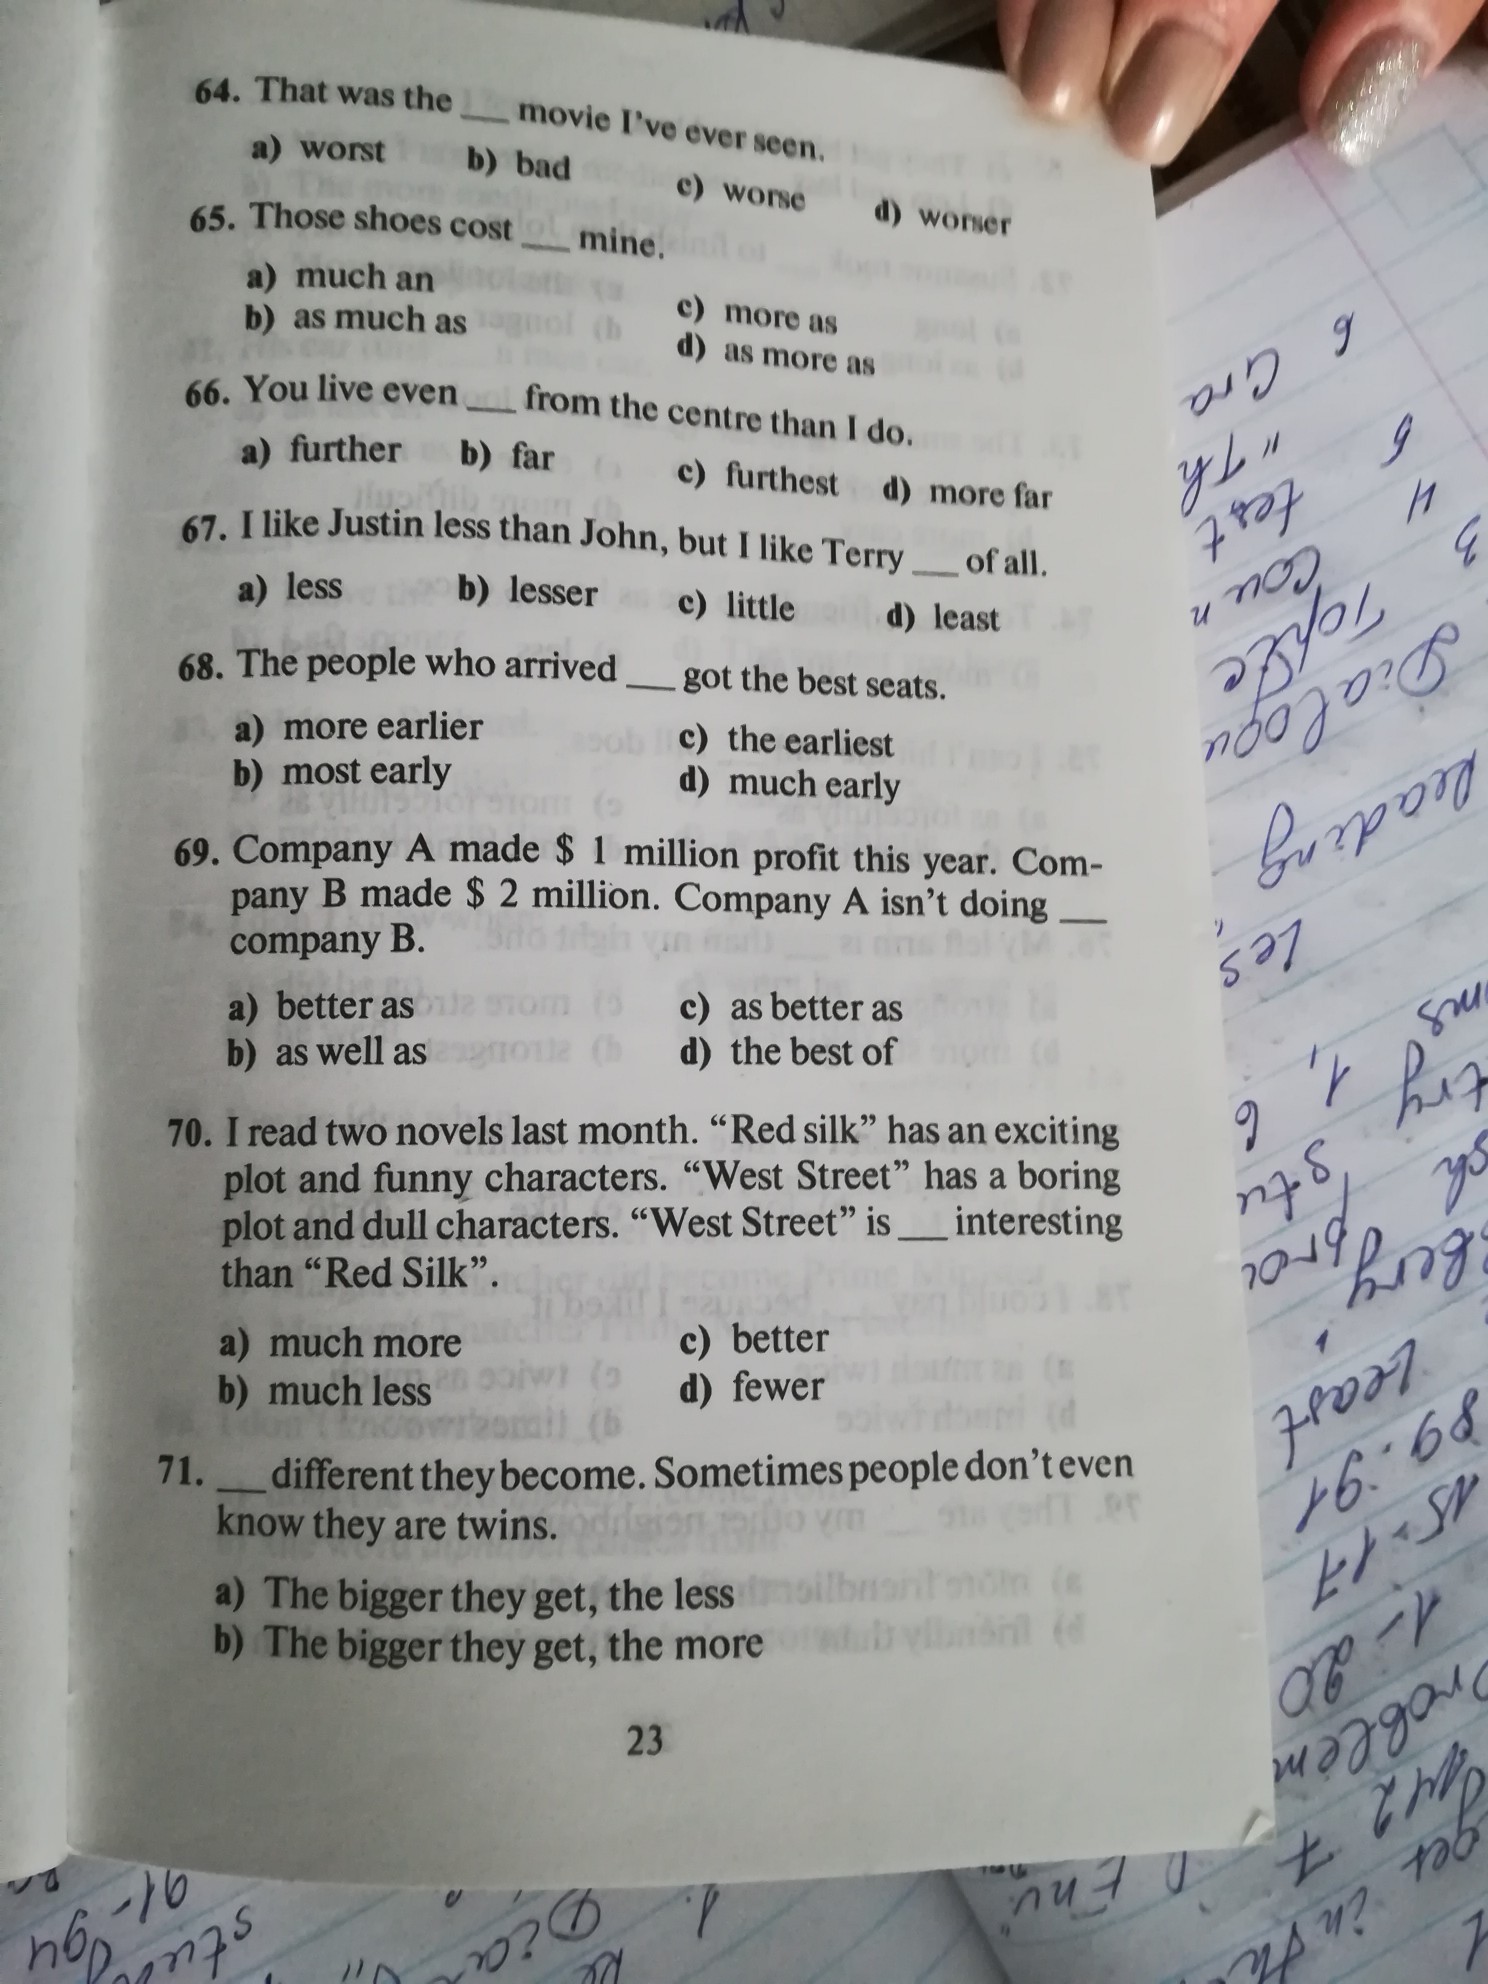 64. That was the ___ movie I've ever seen.
a) worst b) bad c) worse d) worser
65. Those shoes cost ___ mine.
a) much an c) more as
b) as much as d) as more as
66. You live even ___ from the centre than I do.
a) further b) far c) furthest d) more far
67. I like Justin less than John, but I like Terry ___ of all.
a) less b) lesser c) little d) least
68. The people who arrived ___ got the best seats.
a) more earlier c) the earliest
b) most early d) much early
69. Company A made $ 1 million profit this year. Com-
pany B made $ 2 million. Company A isn't doing ___
company B.
a) better as c) as better as
b) as well as d) the best of
70. I read two novels last month. “Red silk” has an exciting
plot and funny characters. “West Street” has a boring
plot and dull characters. “West Street” is ___ interesting
than “Red Silk”.
a) much more c) better
b) much less d) fewer
71. ___ different they become. Sometimes people don't even
know they are twins.
a) The bigger they get, the less
b) The bigger they get, the more
23
6
Gra
5
"Th
4
test
3
Topic
Dialogu
Reading
Les
1,
6
stu
Least
89-91
15-17
1-20
Problem
7